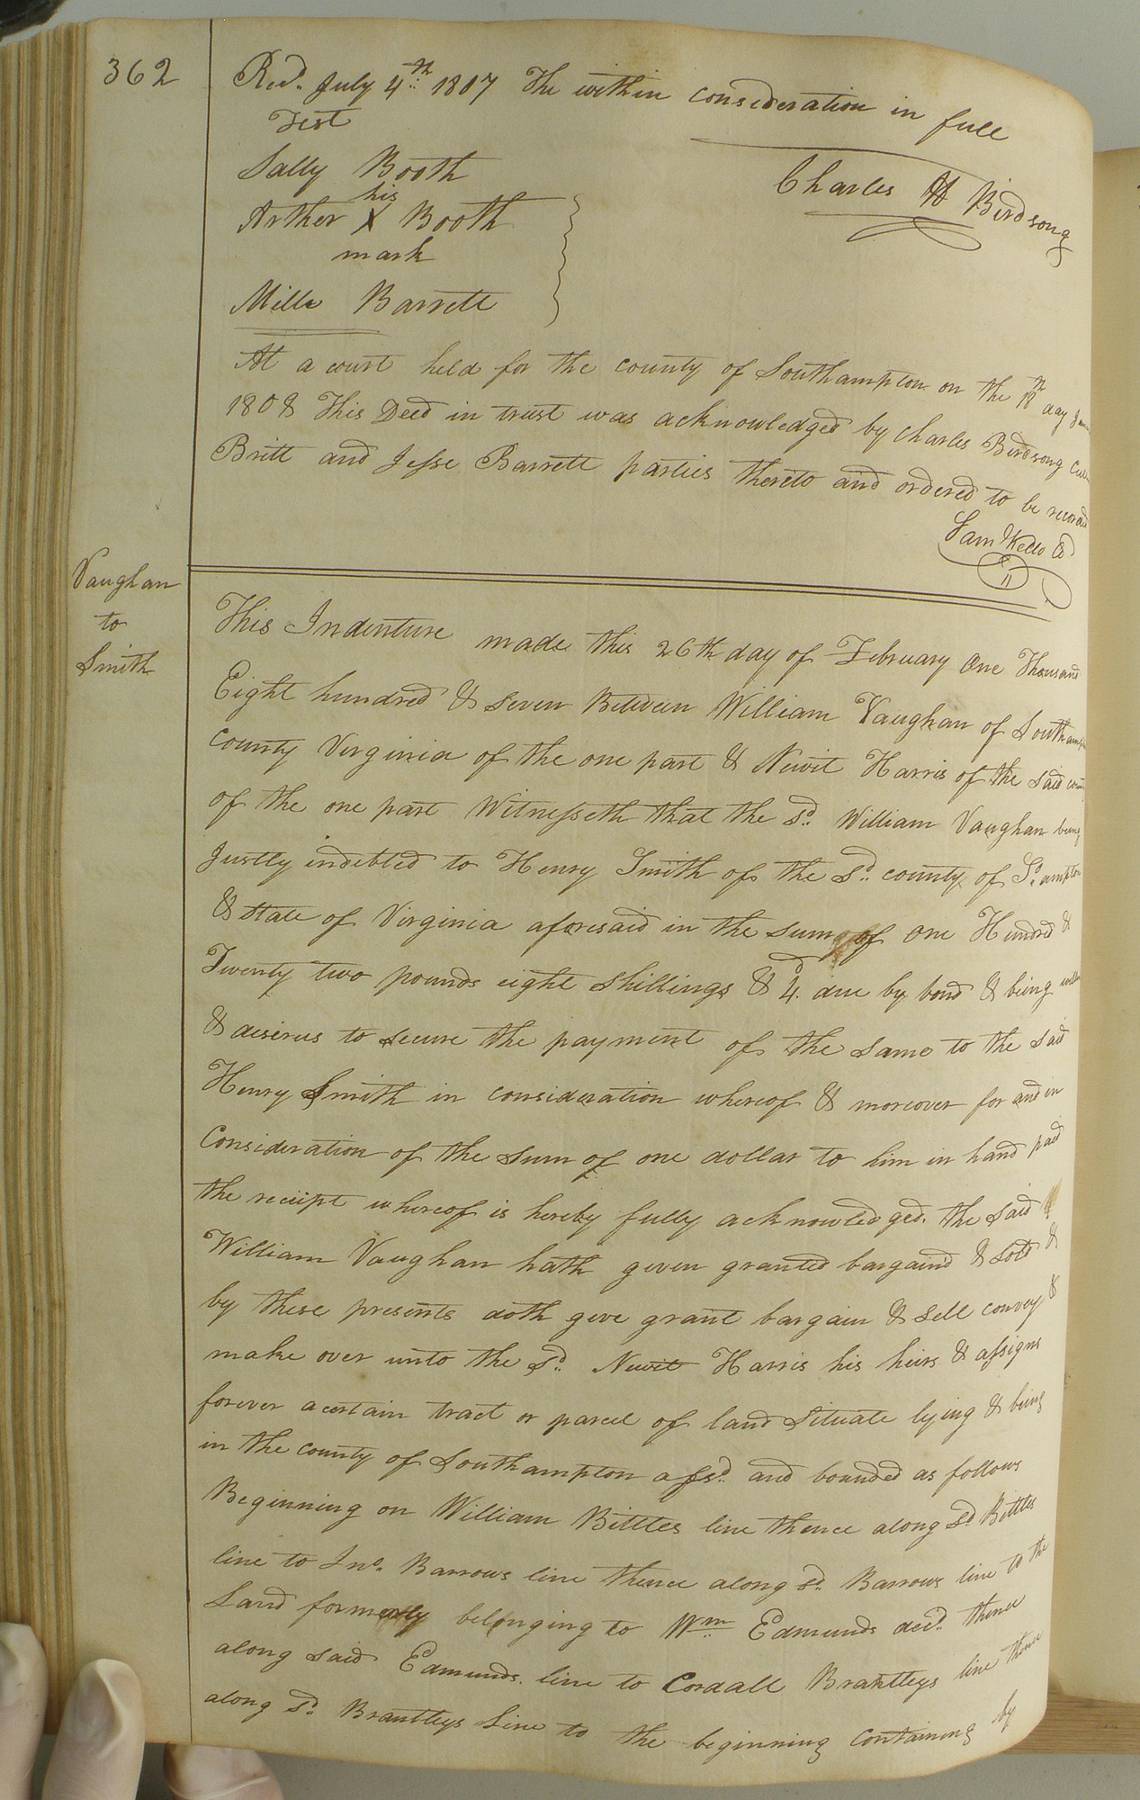 362
Recd. July 4th 1807 The within consideration in full
Test
Sally Booth
Charles H Birdsong
his
Arther X Booth
mark
Mills Barrett
At a court held for the county of Southampton on the 18th day
1808 This Deed in trust was acknowledged by Charles Birdsong
Britt and Jesse Barrett parties thereto and ordered to be record
Sam Kello
Vaughan
to
Smith
This Indenture made this 26th day of February One Thousand
Eight hundred & seven Between William Vaughan of Southam
County Virginia of the one part & Newit Harris of the said
of the one part Witnesseth that the sd. William Vaughan being
Justly indebted to Henry Smith of the sd. county of So.ampton
& State of Virginia aforesaid in the sum of One Hundred &
Twenty two pounds eight shillings & 4d. due by bond & being
& desirus to secure the payment of the same to the said
Henry Smith in consideration whereof & moreover for and in
Consideration of the sum of one dollar to him in hand paid
the reciipt whereof is hereby fully acknowledged. the said
William Vaughan hath given granted bargaind & sold &
by these presents doth give grant bargain & sell convey &
make over unto the sd. Newit Harris his heirs & assigns
forever a certain tract or parcel of land Situate lying & being
in the county of Southampton afsd. and bounded as follows
Beginning on William Bittles line thence along sd Bittles
line to Jno. Barrows line thence along sd. Barrows line to the
Land formerly belonging to Wm Edmunds decd. thence
along said Edmunds. line to Cordall Brantleys line thence
along sd. Brantleys Line to the beginning Containing by